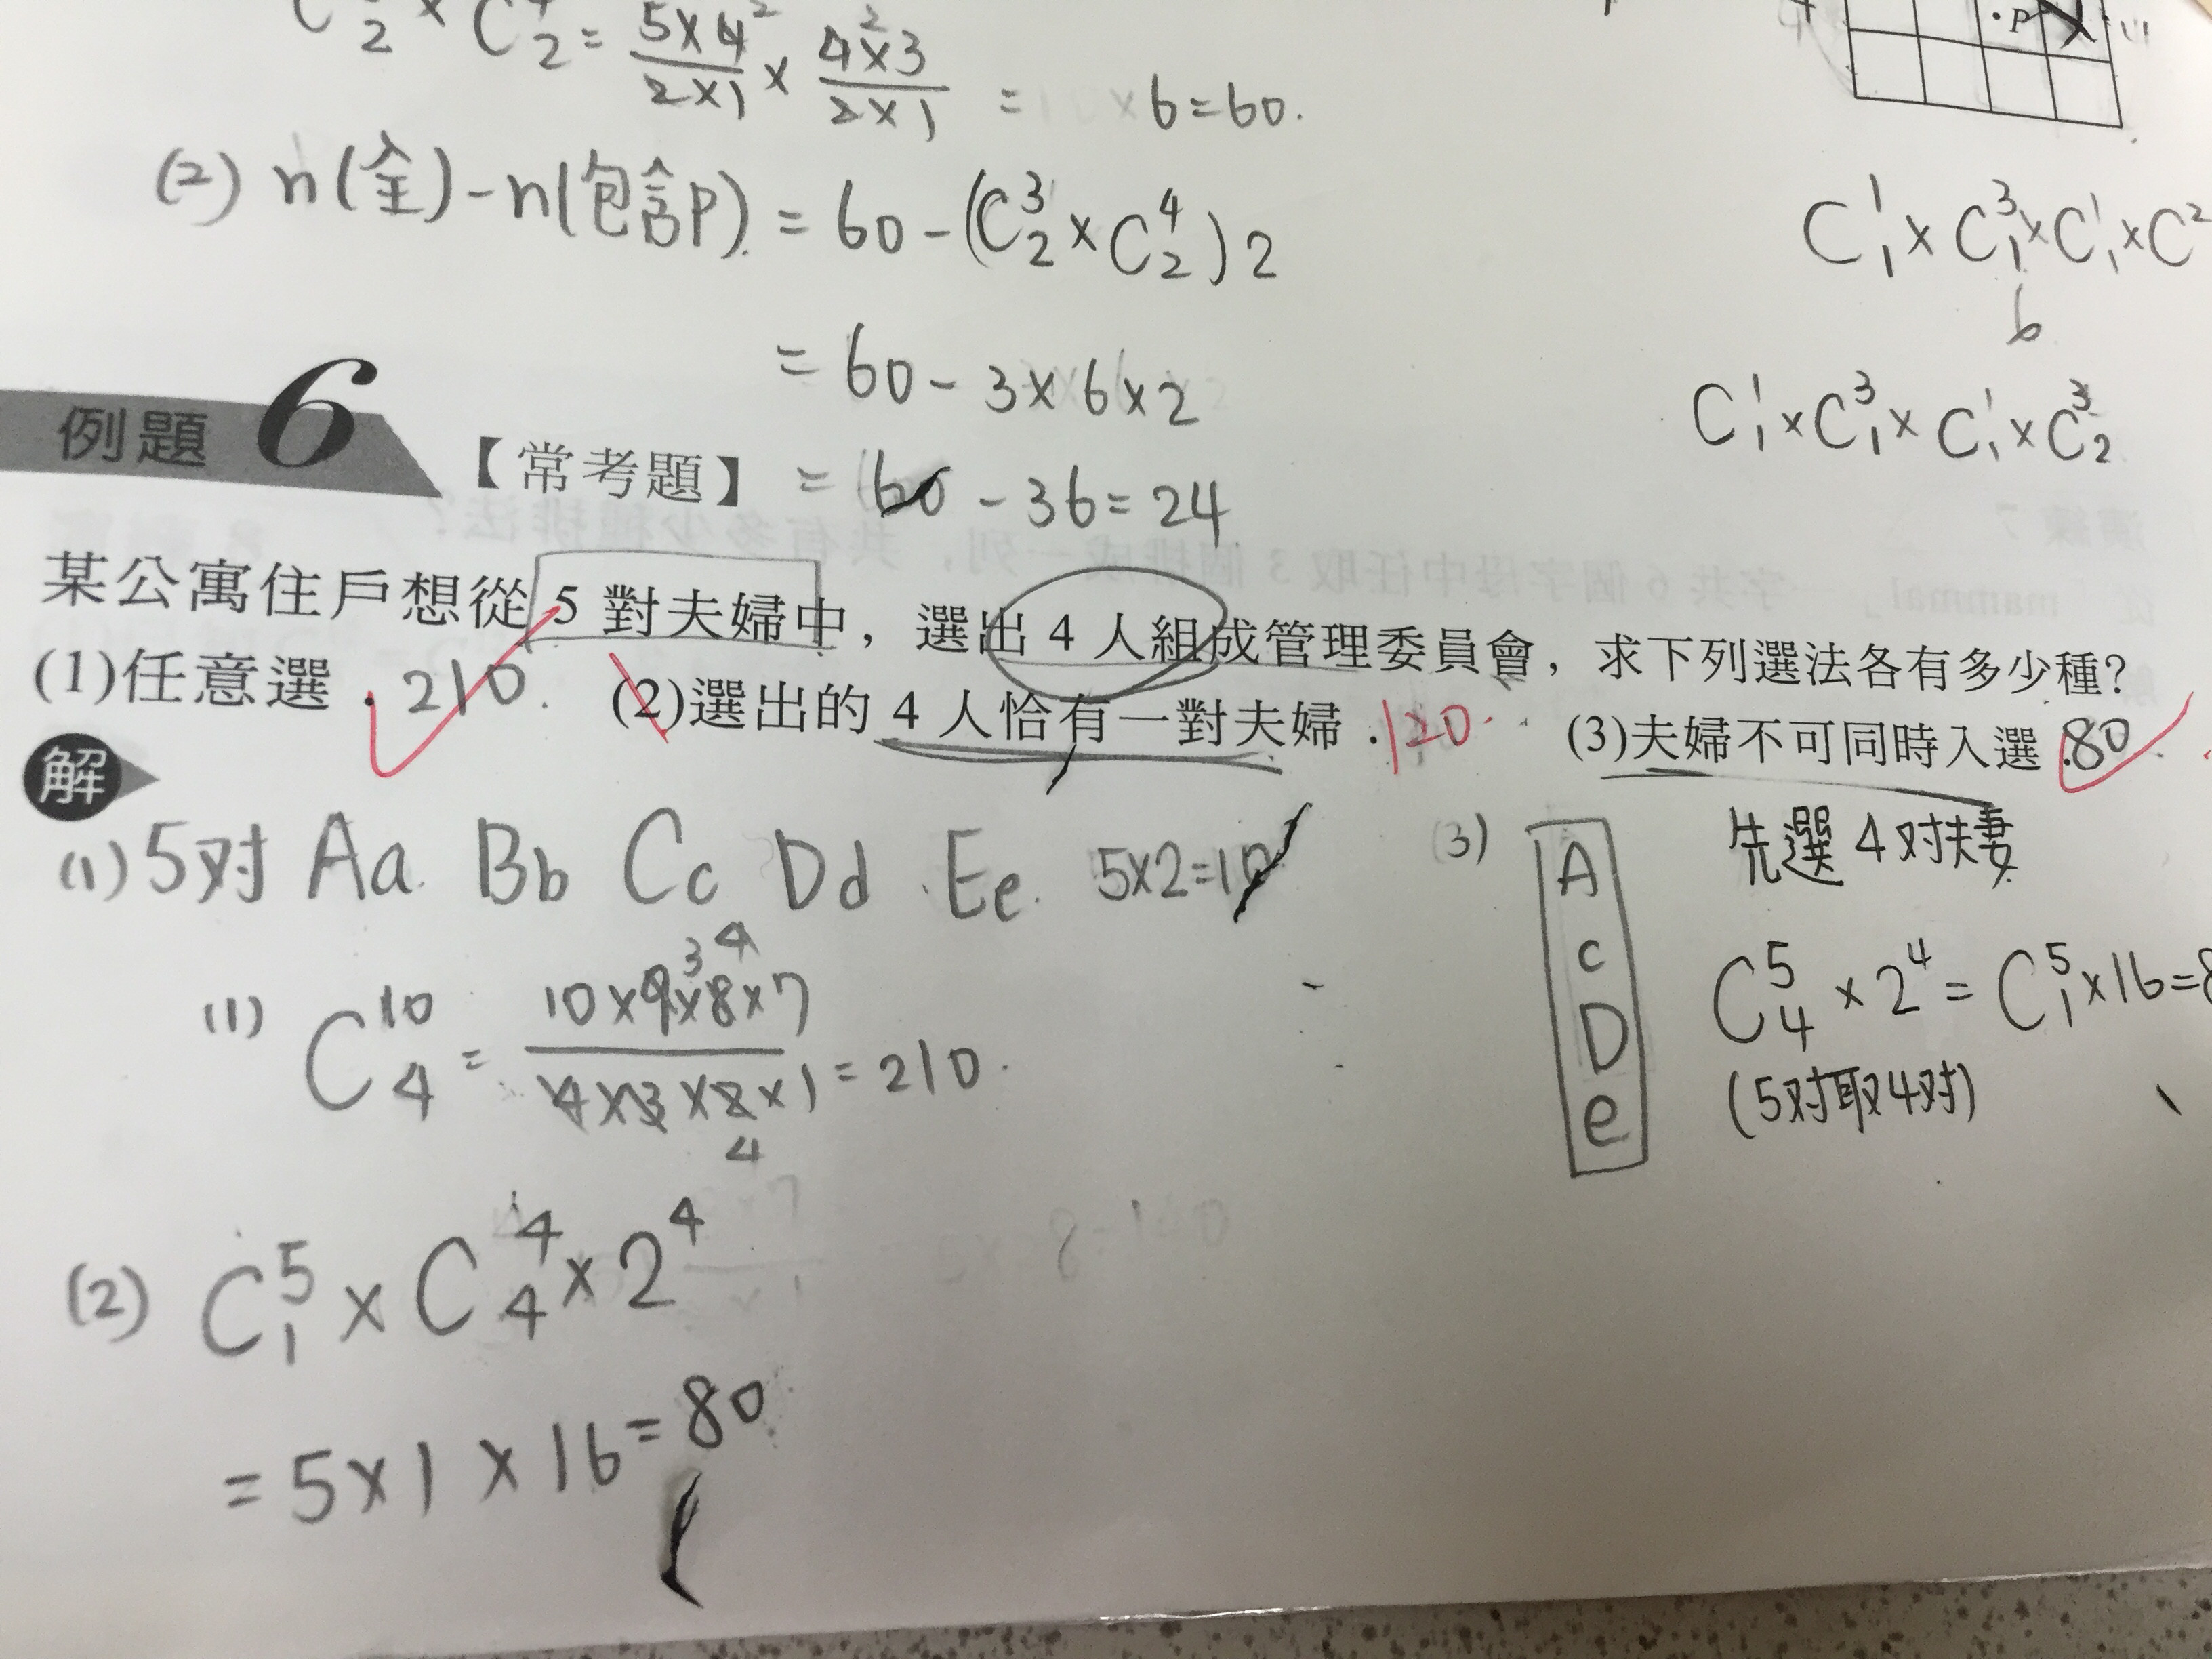 C₂ × C⁴₂ = 5×4/2×1 × 4×3/2×1 = × 6 = 60.
(2) n(全) - n(包含P) = 60 - (C³₂ × C⁴₂) 2
= 60 - 3 × 6 × 2
= 60 - 36 = 24
P
C¹₁ × C³₁ × C¹₁ × C²
6
C¹₁ × C³₁ × C¹₁ × C³₂
例題 6 【常考題】
某公寓住戶想從 5 對夫婦中，選出 4 人組成管理委員會，求下列選法各有多少種？
(1)任意選．210. (2)選出的 4 人恰有一對夫婦．120. (3)夫婦不可同時入選．80
解
(1) 5对 Aa. Bb Cc Dd .Ee. 5×2=10
(1) C¹⁰₄ = 10×9×8×7/4×3×2×1 = 210.
3 4
4
(2) C⁵₁ × C⁴₄ × 2⁴
= 5 × 1 × 16 = 80
(3) A
c
D
e
先選 4 对夫妻
C⁵₄ × 2⁴ = C⁵₁ × 16 = 8
(5对取4对)